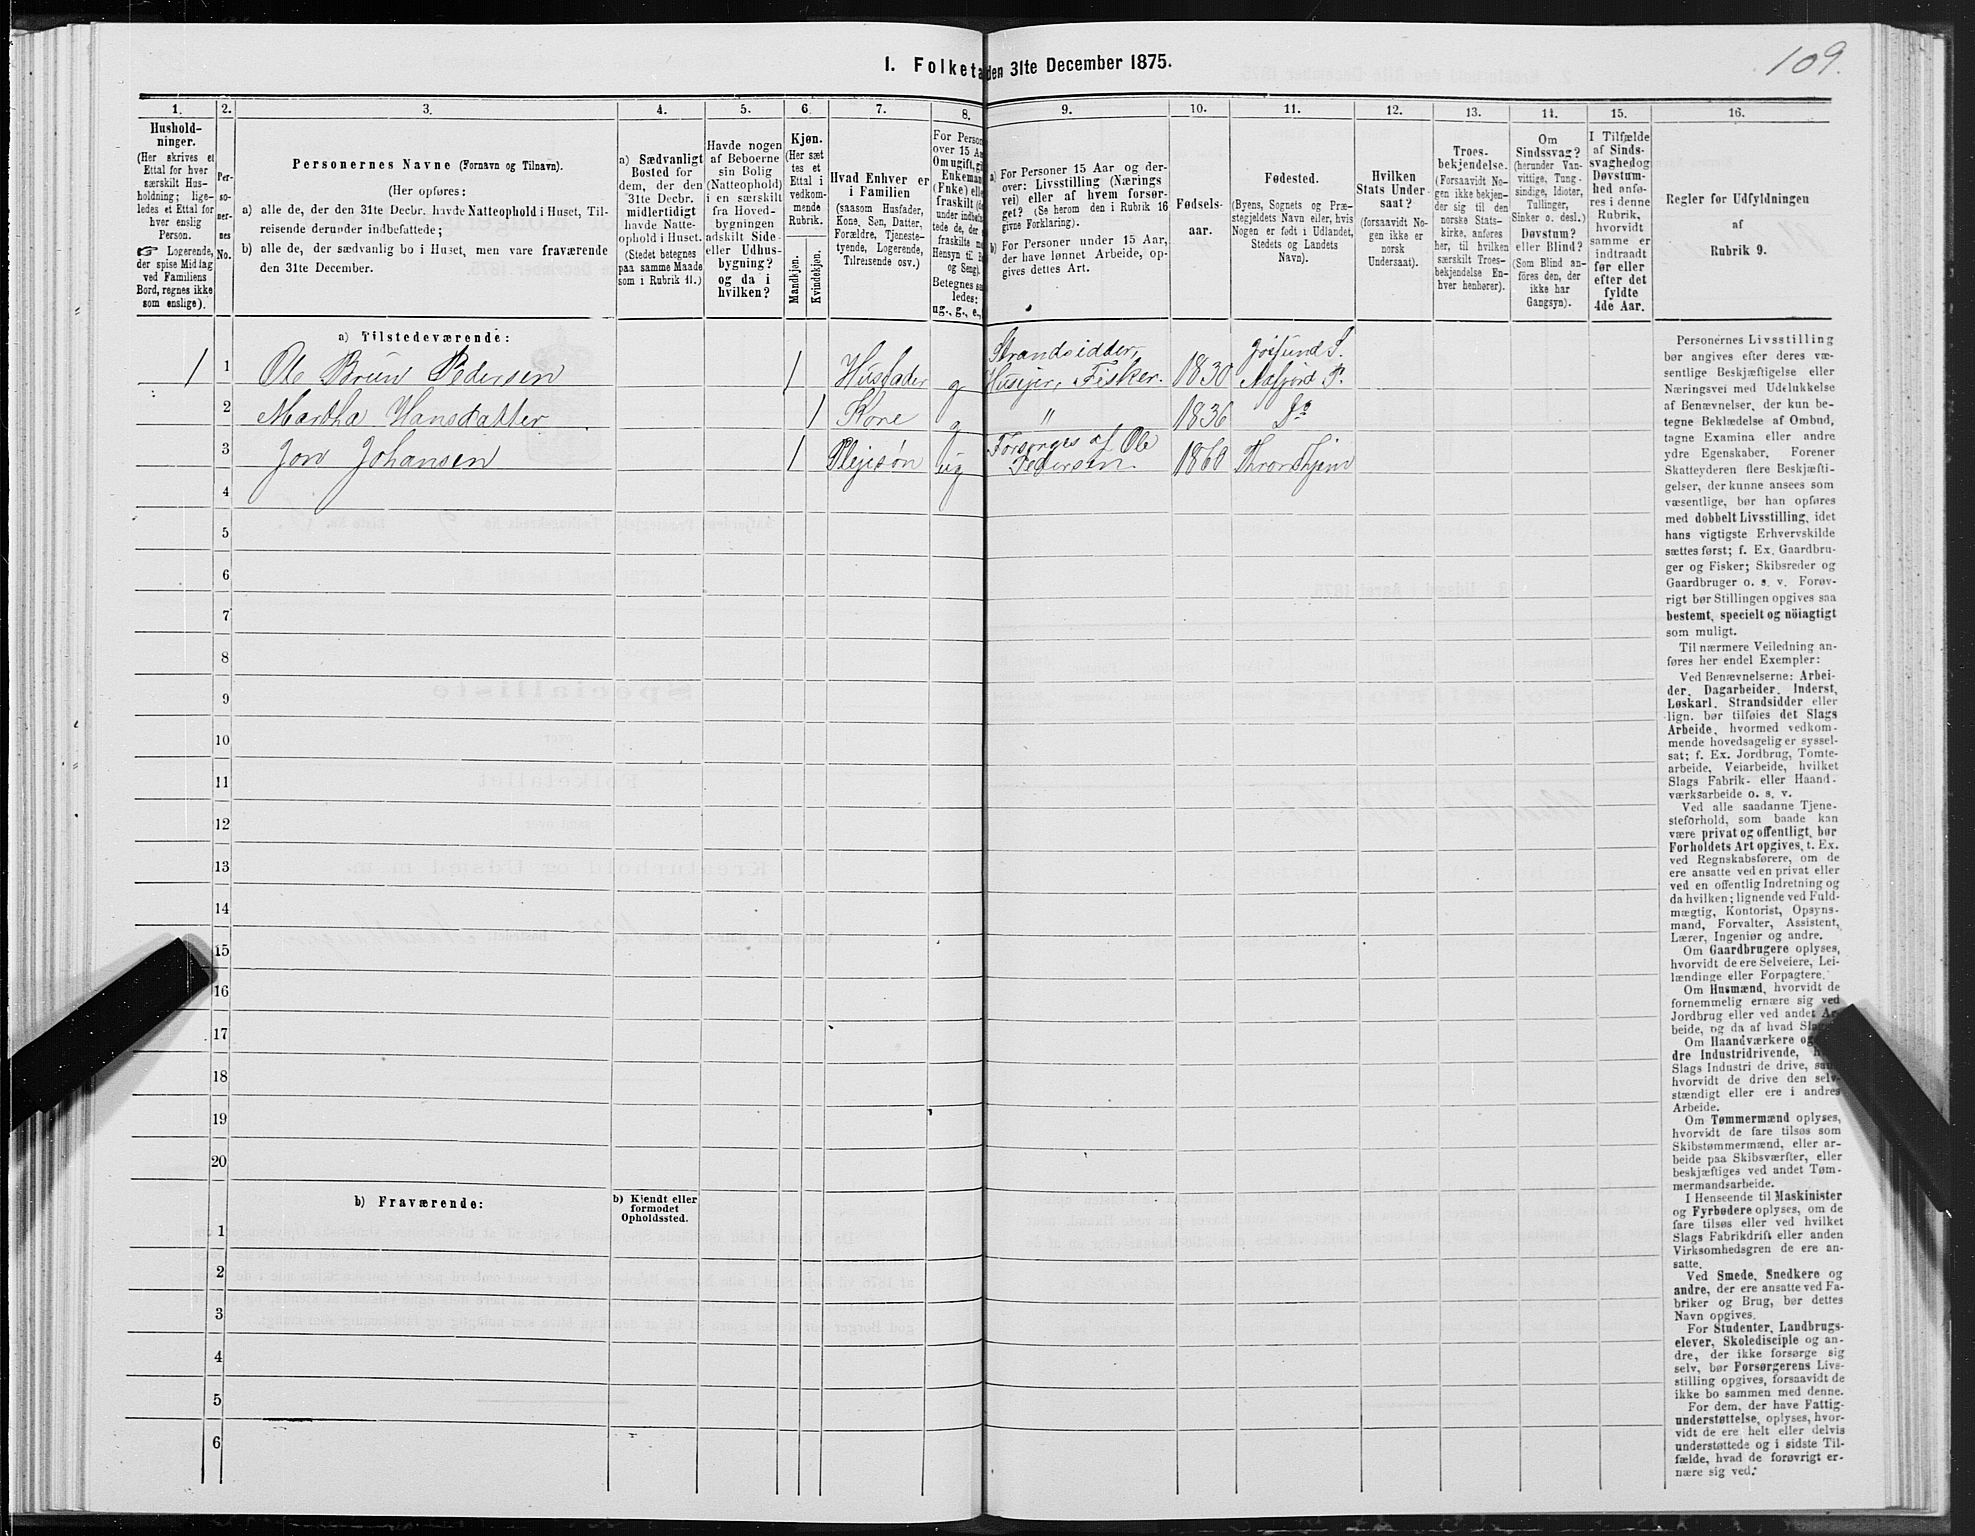 109.
I. Folketa den 31te December 1875.
1. 2. 3. 4. 5. 6. 7. 8. 9. 10. 11. 12. 13. 14. 15. 16.
Hushold-
ninger.
(Her skrives et
Ettal for hver
særskilt Hus-
holdning; lige-
ledes et Ettal for
hver enslig
Person.
☞ Logerende,
der spise Middag
ved Familiens
Bord, regnes ikke
som enslige).
Per-
so-
ner-
nes
No.
Personernes Navne (Fornavn og Tilnavn).
(Her opføres:
a) alle de, der den 31te Decbr. havde Natteophold i Huset, Til-
reisende derunder indbefattede;
b) alle de, der sædvanlig bo i Huset, men vare fraværende
den 31te December.
a) Sædvanligt
Bosted for
dem, der den
31te Decbr.
midlertidigt
havde Natte-
ophold i Huset.
(Stedet betegnes
paa samme Maade
som i Rubrik 11.)
Havde nogen
af Beboerne
sin Bolig
(Natteophold)
i en særskilt
fra Hoved-
bygningen
adskilt Side-
eller Udhus-
bygning?
og da i
hvilken?
Kjøn.
(Her sæt
tes et
Ettal i
vedkom-
mende
Rubrik.
Mandkjøn.
Kvindekjøn.
Hvad Enhver er
i Familien
(saasom Husfader,
Kone, Søn, Datter,
Forældre, Tjeneste-
tyende, Logerende,
Tilreisende osv.)
For Person
over 15 Aa
Om ugift, gi
Enkeman
(Fnke) elle
fraskilt (
under indbe
tede de, der
fraskilte m
Hensyn til B
og Seng).
Betegnes sa
ledes:
ug., g., e.,
a) For Personer 15 Aar og der-
over: Livsstilling (Nærings
vei) eller af hvem forsør-
get? (Se herom den i Rubrik 16
givne Forklaring).
b) For Personer under 15 Aar,
der have lønnet Arbeide, op-
gives dettes Art.
Fødsels-
aar.
Fødested.
(Byens, Sognets og Præ-
stegjeldets Navn eller, hvis
Nogen er født i Udlandet,
Stedets og Landets
Navn).
Hvilken
Stats Under-
saat?
(forsaavidt No-
gen ikke er
norsk
Undersaat).
Troes-
bekjendelse.
(Forsaavidt No-
gen ikke bekjen-
der sig til den
norske Stats-
kirke, anføres
her, til hvilken
særskilt Troes-
bekjendelse En-
hver henhører).
Om
Sindssvag?
(herunder Van-
vittige, Tung-
sindige, Idioter,
Tullinger,
Sinker o. desl.)
Døvstum?
eller Blind?
(Som Blind an-
føres den, der
ikke har
Gangsyn).
I Tilfælde
af Sinds-
svaghed og
Døvstum-
hed anfø-
res i denne
Rubrik,
hvorvidt
samme er
indtraadt
før eller
efter det
fyldte
4de Aar.
Regler for Udfyldningen
af
Rubrik 9.
a) Tilstedeværende:
1 1 Ole Brun Pedersen 1 Husfader g Strandsidder, Huseier, Fisker. 1830 Jøssund S. Aafjord P.
2 Martha Hansdatter 1 Kone g " 1836 Do
3 Jon Johansen 1 Plejesøn ug Forsørges af Ole Pedersen. 1860 Throndhjem
4
5
6
7
8
9
10
11
12
13
14
15
16
17
18
19
20
b) Fraværende:
b) Kjendt eller
formodet
Opholdssted.
1
2
3
4
5
6
Personernes Livsstilling
bør angives efter deres væ-
sentlige Beskjæftigelse eller
Næringsvei med Udelukkelse
af Benævnelser, der kun be-
tegne Beklædelse af Ombud,
tagne Examina eller andre
ydre Egenskaber. Forener
Skatteyderen flere Beskjæfti-
gelser, der kunne ansees som
væsentlige, bør han opføres
med dobbelt Livsstilling, idet
hans vigtigste Erhvervskilde
sættes først; f. Ex. Gaardbru-
ger og Fisker; Skibsreder og
Gaardbruger o. s. v. Forøv-
rigt bør Stillingen opgives saa
bestemt, specielt og nöiagtigt
som muligt.
Til nærmere Veiledning an-
føres her endel Exempler:
Ved Benævnelserne: Arbei-
der, Dagarbeider, Inderst,
Løskarl, Strandsidder eller
lign. bør tilføies det Slags
Arbeide, hvormed vedkom-
mende hovedsagelig er syssel-
sat; f. Ex. Jordbrug, Tomte-
arbeide, Veiarbeide, hvilket
Slags Fabrik- eller Haand-
værksarbeide o. s. v.
Ved alle saadanne Tjene-
steforhold, som baade kan
være privat og offentligt, bør
Forholdets Art opgives, t. Ex.
ved Regnskabsførere, om de
ere ansatte ved en privat eller
ved en offentlig Indretning og
da hvilken; lignende ved Fuld-
mægtig, Kontorist, Opsyns-
mand, Forvalter, Assistent,
Lærer, Ingeniør og andre.
Om Gaardbrugere oplyses,
hvorvidt de ere Selveiere, Lei-
lændinge eller Forpagtere.
Om Husmænd, hvorvidt de
fornemmelig ernære sig ved
Jordbrug eller ved andet Ar-
beide, og da af hvad Slags.
Om Haandværkere og
dre Industridrivende,
Slags Industri de drive, sa
hvorvidt de drive den selv-
stændigt eller ere i andres
Arbeide.
Om Tømmermænd oplyses,
hvorvidt de fare tilsøs som
Skibstømmermænd, eller ar-
beide paa Skibsværfter, eller
beskjæftiges ved andet Tøm-
mermandsarbeide.
I Henseende til Maskinister
og Fyrbødere oplyses, om de
fare tilsøs eller ved hvilket
Slags Fabrikdrift eller anden
Virksomhedsgren de ere an-
satte.
Ved Smede, Snedkere og
andre, der ere ansatte ved Fa-
briker og Brug, bør dettes
Navn opgives.
For Studenter, Landbrugs-
elever, Skoledisciple og an-
dre, der ikke forsørge sig
selv, bør Forsørgerens Livs-
stilling opgives, forsaavidt de
ikke bo sammen med denne.
For dem, der have Fattig-
understøttelse, oplyses, hvor-
vidt de ere helt eller delvis
understøttede og i sidste Til-
fælde, hvad de forøvrigt er-
nære sig ved.